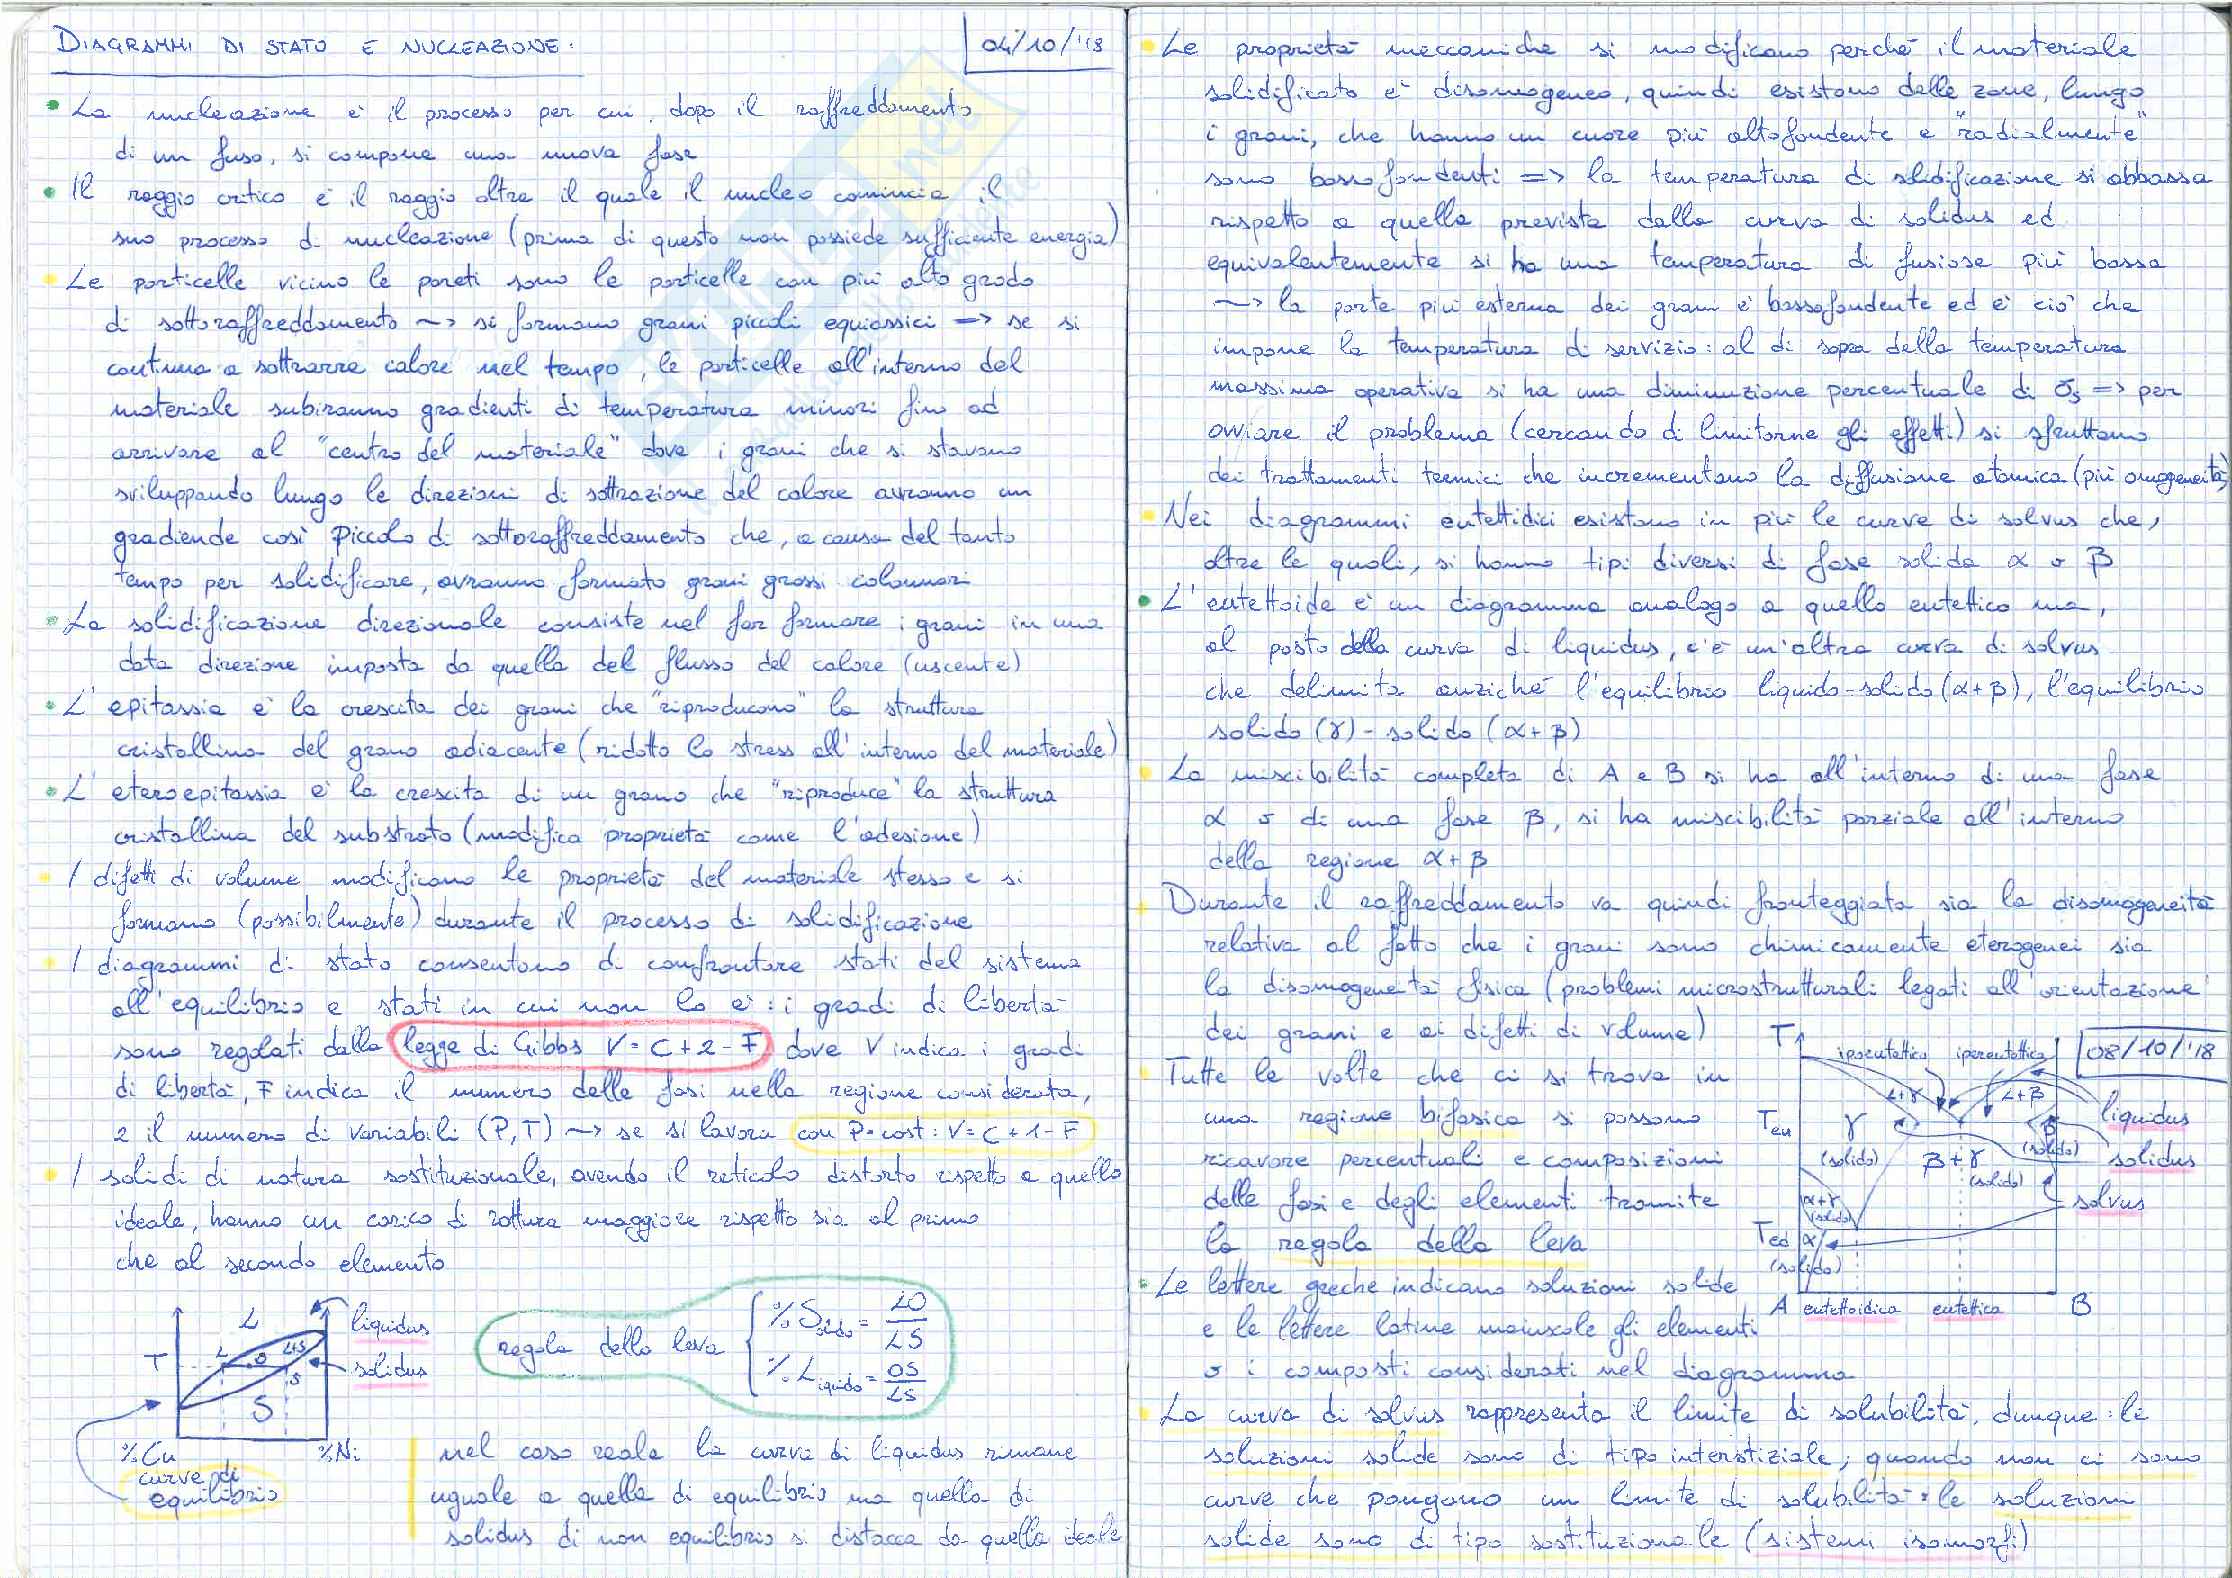 DIAGRAMMI DI STATO E NUCLEAZIONE.
04/10/'18
• La nucleazione è il processo per cui, dopo il raffreddamento
di un fuso, si compone una nuova fase
• Il raggio critico è il raggio oltre il quale il nucleo comincia il
suo processo di nucleazione (prima di questo non possiede sufficiente energia)
• Le particelle vicino le pareti sono le particelle con più alto grado
di sottoraffreddamento ~> si formano grani piccoli equiassici => se si
continua a sottrarre calore nel tempo, le particelle all'interno del
materiale subiranno gradienti di temperatura minori fino ad
arrivare al "centro del materiale" dove i grani che si stavano
sviluppando lungo le direzioni di sottrazione del calore avranno un
gradiende così piccolo di sottoraffreddamento che, a causa del tanto
tempo per solidificare, avranno formato grani grossi colonnari
• La solidificazione direzionale consiste nel far formare i grani in una
data direzione imposta da quella del flusso del calore (uscente)
• L'epitassia è la crescita dei grani che "riproducono" la struttura
cristallina del grano adiacente (ridotto lo stress all'interno del materiale)
• L'eteroepitassia è la crescita di un grano che "riproduce" la struttura
cristallina del substrato (modifica proprietà come l'adesione)
• I difetti di volume modificano le proprietà del materiale stesso e si
formano (possibilmente) durante il processo di solidificazione
• I diagrammi di stato consentono di confrontare stati del sistema
all'equilibrio e stati in cui non lo è: i gradi di libertà
sono regolati dalla legge di Gibbs V = C + 2 - F dove V indica i gradi
di libertà, F indica il numero delle fasi nella regione considerata,
2 il numero di variabili (P,T) ~> se si lavora con P=cost: V = C + 1 - F
• I solidi di natura sostituzionale, avendo il reticolo distorto rispetto a quello
ideale, hanno un carico di rottura maggiore rispetto sia al primo
che al secondo elemento
L
liquidus
T
L
O
L+S
S
solidus
S
%Cu
%Ni
curve di
equilibrio
regola della leva
%Solido = LO/LS
%Liquido = OS/LS
nel caso reale la curva di liquidus rimane
uguale a quella di equilibrio ma quella di
solidus di non equilibrio si distacca da quella ideale
• Le proprietà meccaniche si modificano perché il materiale
solidificato è disomogeneo, quindi esistono delle zone, lungo
i grani, che hanno un cuore più altofondente e "radialmente"
sono bassofondenti => la temperatura di solidificazione si abbassa
rispetto a quella prevista dalla curva di solidus ed
equivalentemente si ha una temperatura di fusiose più bassa
~> la parte più esterna dei grani è bassofondente ed è ciò che
impone la temperatura di servizio: al di sopra della temperatura
massima operativa si ha una diminuzione percentuale di σs => per
ovviare il problema (cercando di limitarne gli effetti) si sfruttano
dei trattamenti termici che incrementano la diffusione atomica (più omogeneità)
• Nei diagrammi eutettidici esistono in più le curve di solvus che,
oltre le quali, si hanno tipi diversi di fase solida α o β
• L'eutettoide è un diagramma analogo a quello eutettico ma,
al posto della curva di liquidus, c'è un'altra curva di solvus
che delimita anziché l'equilibrio liquido-solido (α+β), l'equilibrio
solido (γ) - solido (α+β)
• La miscibilità completa di A e B si ha all'interno di una fase
α o di una fase β, si ha miscibilità parziale all'interno
della regione α+β
• Durante il raffreddamento va quindi fronteggiata sia la disomogeneità
relativa al fatto che i grani sono chimicamente eterogenei sia
la disomogeneità fisica (problemi microstrutturali legati all'orientazione
dei grani e ai difetti di volume)
• Tutte le volte che ci si trova in
una regione bifasica si possono
ricavare percentuali e composizioni
delle fasi e degli elementi tramite
la regola della leva
08/10/'18
T
ipoeutettica
ipereutettica
L+γ
L+β
liquidus
Teu
γ
(solido)
β
(solido)
solidus
β+γ
(solido)
α+γ
(solido)
solvus
Ted
α
(solido)
A
eutettoidica
eutettica
B
• Le lettere greche indicano soluzioni solide
e le lettere latine maiuscole gli elementi
o i composti considerati nel diagramma
• La curva di solvus rappresenta il limite di solubilità, dunque: le
soluzioni solide sono di tipo interstiziale; quando non ci sono
curve che pongono un limite di solubilità: le soluzioni
solide sono di tipo sostituzionale (sistemi isomorfi)